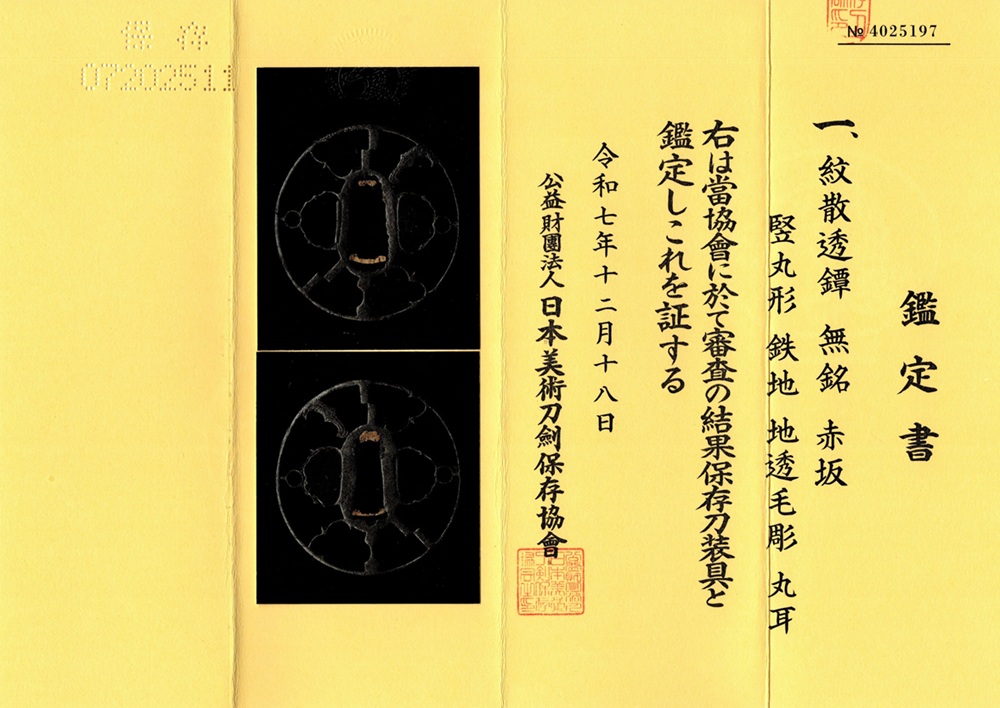 № 4025197
鑑定書
一、紋散透鐔 無銘 赤坂
竪丸形 鉄地 地透毛彫 丸耳
右は當協會に於て審査の結果保存刀装具と
鑑定しこれを証する
令和七年十二月十八日
公益財團法人 日本美術刀劍保存協會
保存
07202511